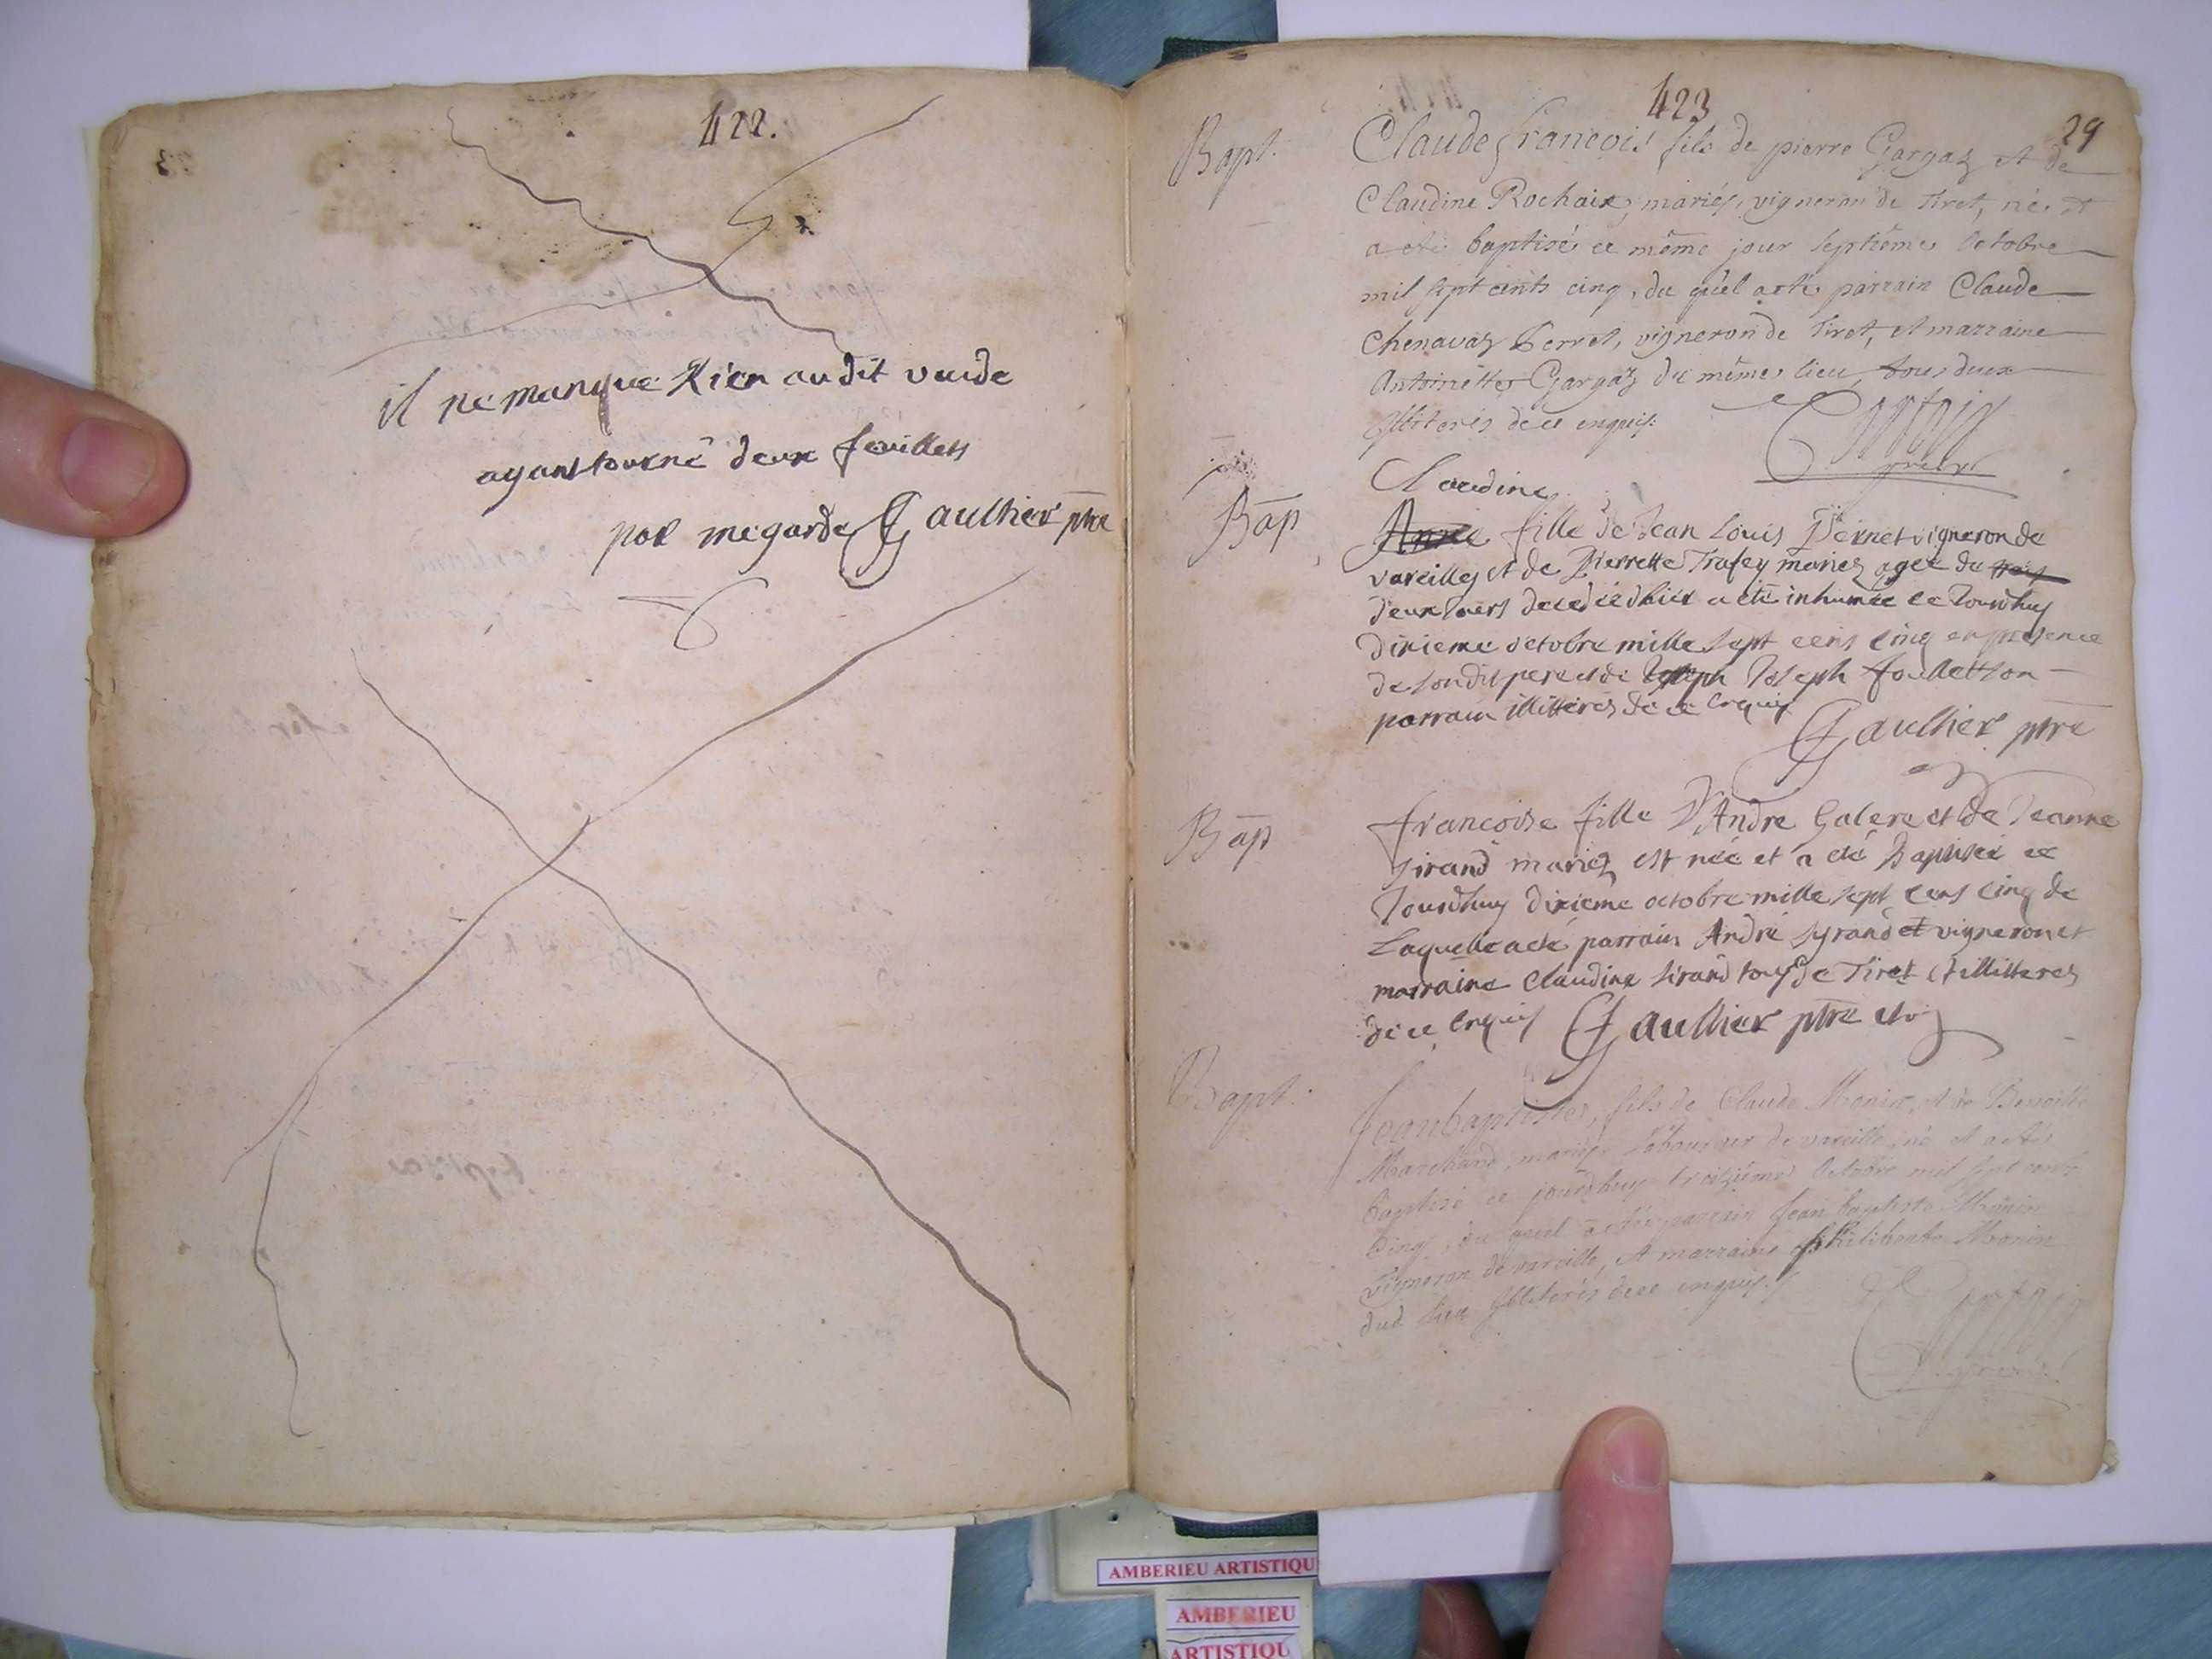 422.
il ne manque Rien audit vuide
ayant tourné deux feuillets
par megarde Gaulthier ptre
423
29
Bapt.
Claude francois fils de pierre Gargaz et de
Claudine Rochaix, mariés, vigneron de Tiret, né et
a eté baptisé ce même jour septiéme Octobre
mil sept cents cinq, du quel a eté parrain Claude
Chenavaz Perret, vigneron de Tiret, et marraine
Antoinette Gargaz du même lieu, tous deux
illiterés de ce enquis.
Claudine
Bap
Anne fille de Jean Louis Pernet vigneron de
vareilles et de Pierrette Trafey mariez agee de trois
deux jours decedée d'hier a été inhumée ce Jourdhuy
dixieme octobre mille sept cens cinq en presence
de son dit pere et de Joseph Joseph foulletton
parrain illitterés de ce Enquis
Gaulthier ptre
Bap
francoise fille D'André Galere et de Jeanne
Sirand mariez est née et a eté Baptisée ce
Jourdhuy dixieme octobre mille sept cens cinq de
Laquelle a eté parrain André Syrand et vigneron et
marraine Claudine Sirand tous de Tiret et illitteres
de ce Enquis Gaulthier ptre
Bapt.
Jean baptiste, fils de Claude Monin, et de Benoitte
Marchand, mariés, laboureur de vareille, né et a eté
baptisé ce jourdhuy treiziéme Octobre mil sept cents
cinq, du quel a eté parrain Jean baptiste Monin
vigneron de vareille, et marraine Philiberte Monin
dud. lieu illiterés de ce enquis.
AMBERIEU ARTISTIQU
AMBERIEU
ARTISTIQU